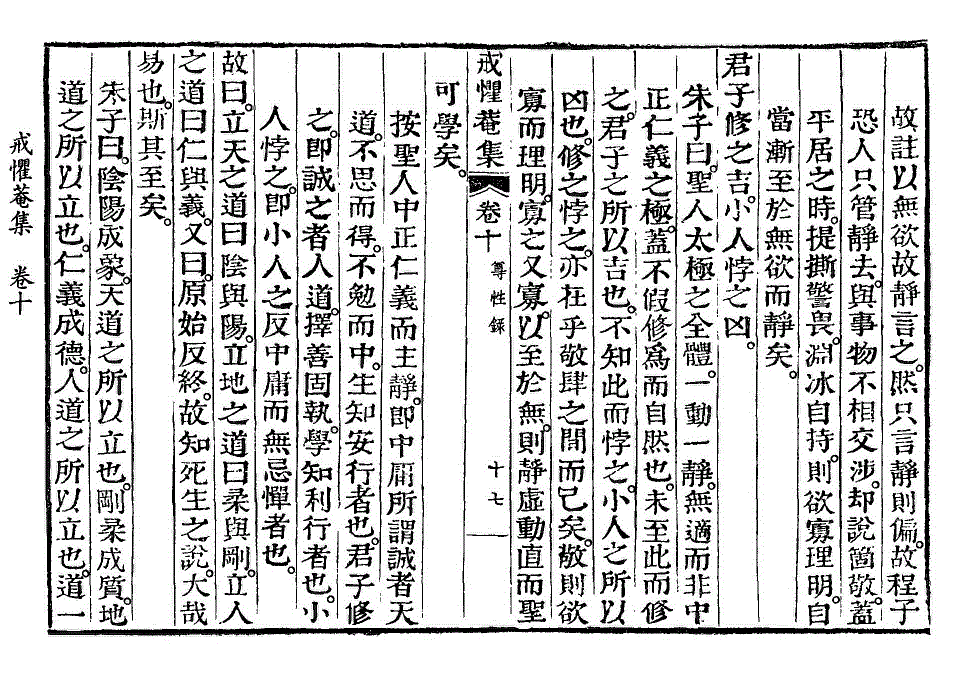 故註以無欲故靜言之。然只言靜則偏。故程子
恐人只管靜去。與事物不相交涉。却說箇敬。蓋
平居之時。提撕警畏。淵冰自持。則欲寡理明。自
當漸至於無欲而靜矣。
君子修之吉。小人悖之凶。
朱子曰。聖人太極之全體。一動一靜。無適而非中
正仁義之極。蓋不假修爲而自然也。未至此而修
之。君子之所以吉也。不知此而悖之。小人之所以
凶也。修之悖之。亦在乎敬肆之間而已矣。敬則欲
寡而理明。寡之又寡。以至於無。則靜虛動直而聖
戒懼菴集 卷十 尊性錄 十七
可學矣。
按聖人中正仁義而主靜。即中庸所謂誠者天
道。不思而得。不勉而中。生知安行者也。君子修
之。即誠之者人道。擇善固執。學知利行者也。小
人悖之。即小人之反中庸而無忌憚者也。
故曰。立天之道曰陰與陽。立地之道曰柔與剛。立人
之道曰仁與義。又曰。原始反終。故知死生之說。大哉
易也。斯其至矣。
朱子曰。陰陽成象。天道之所以立也。剛柔成質。地
道之所以立也。仁義成德。人道之所以立也。道一
戒懼菴集 卷十